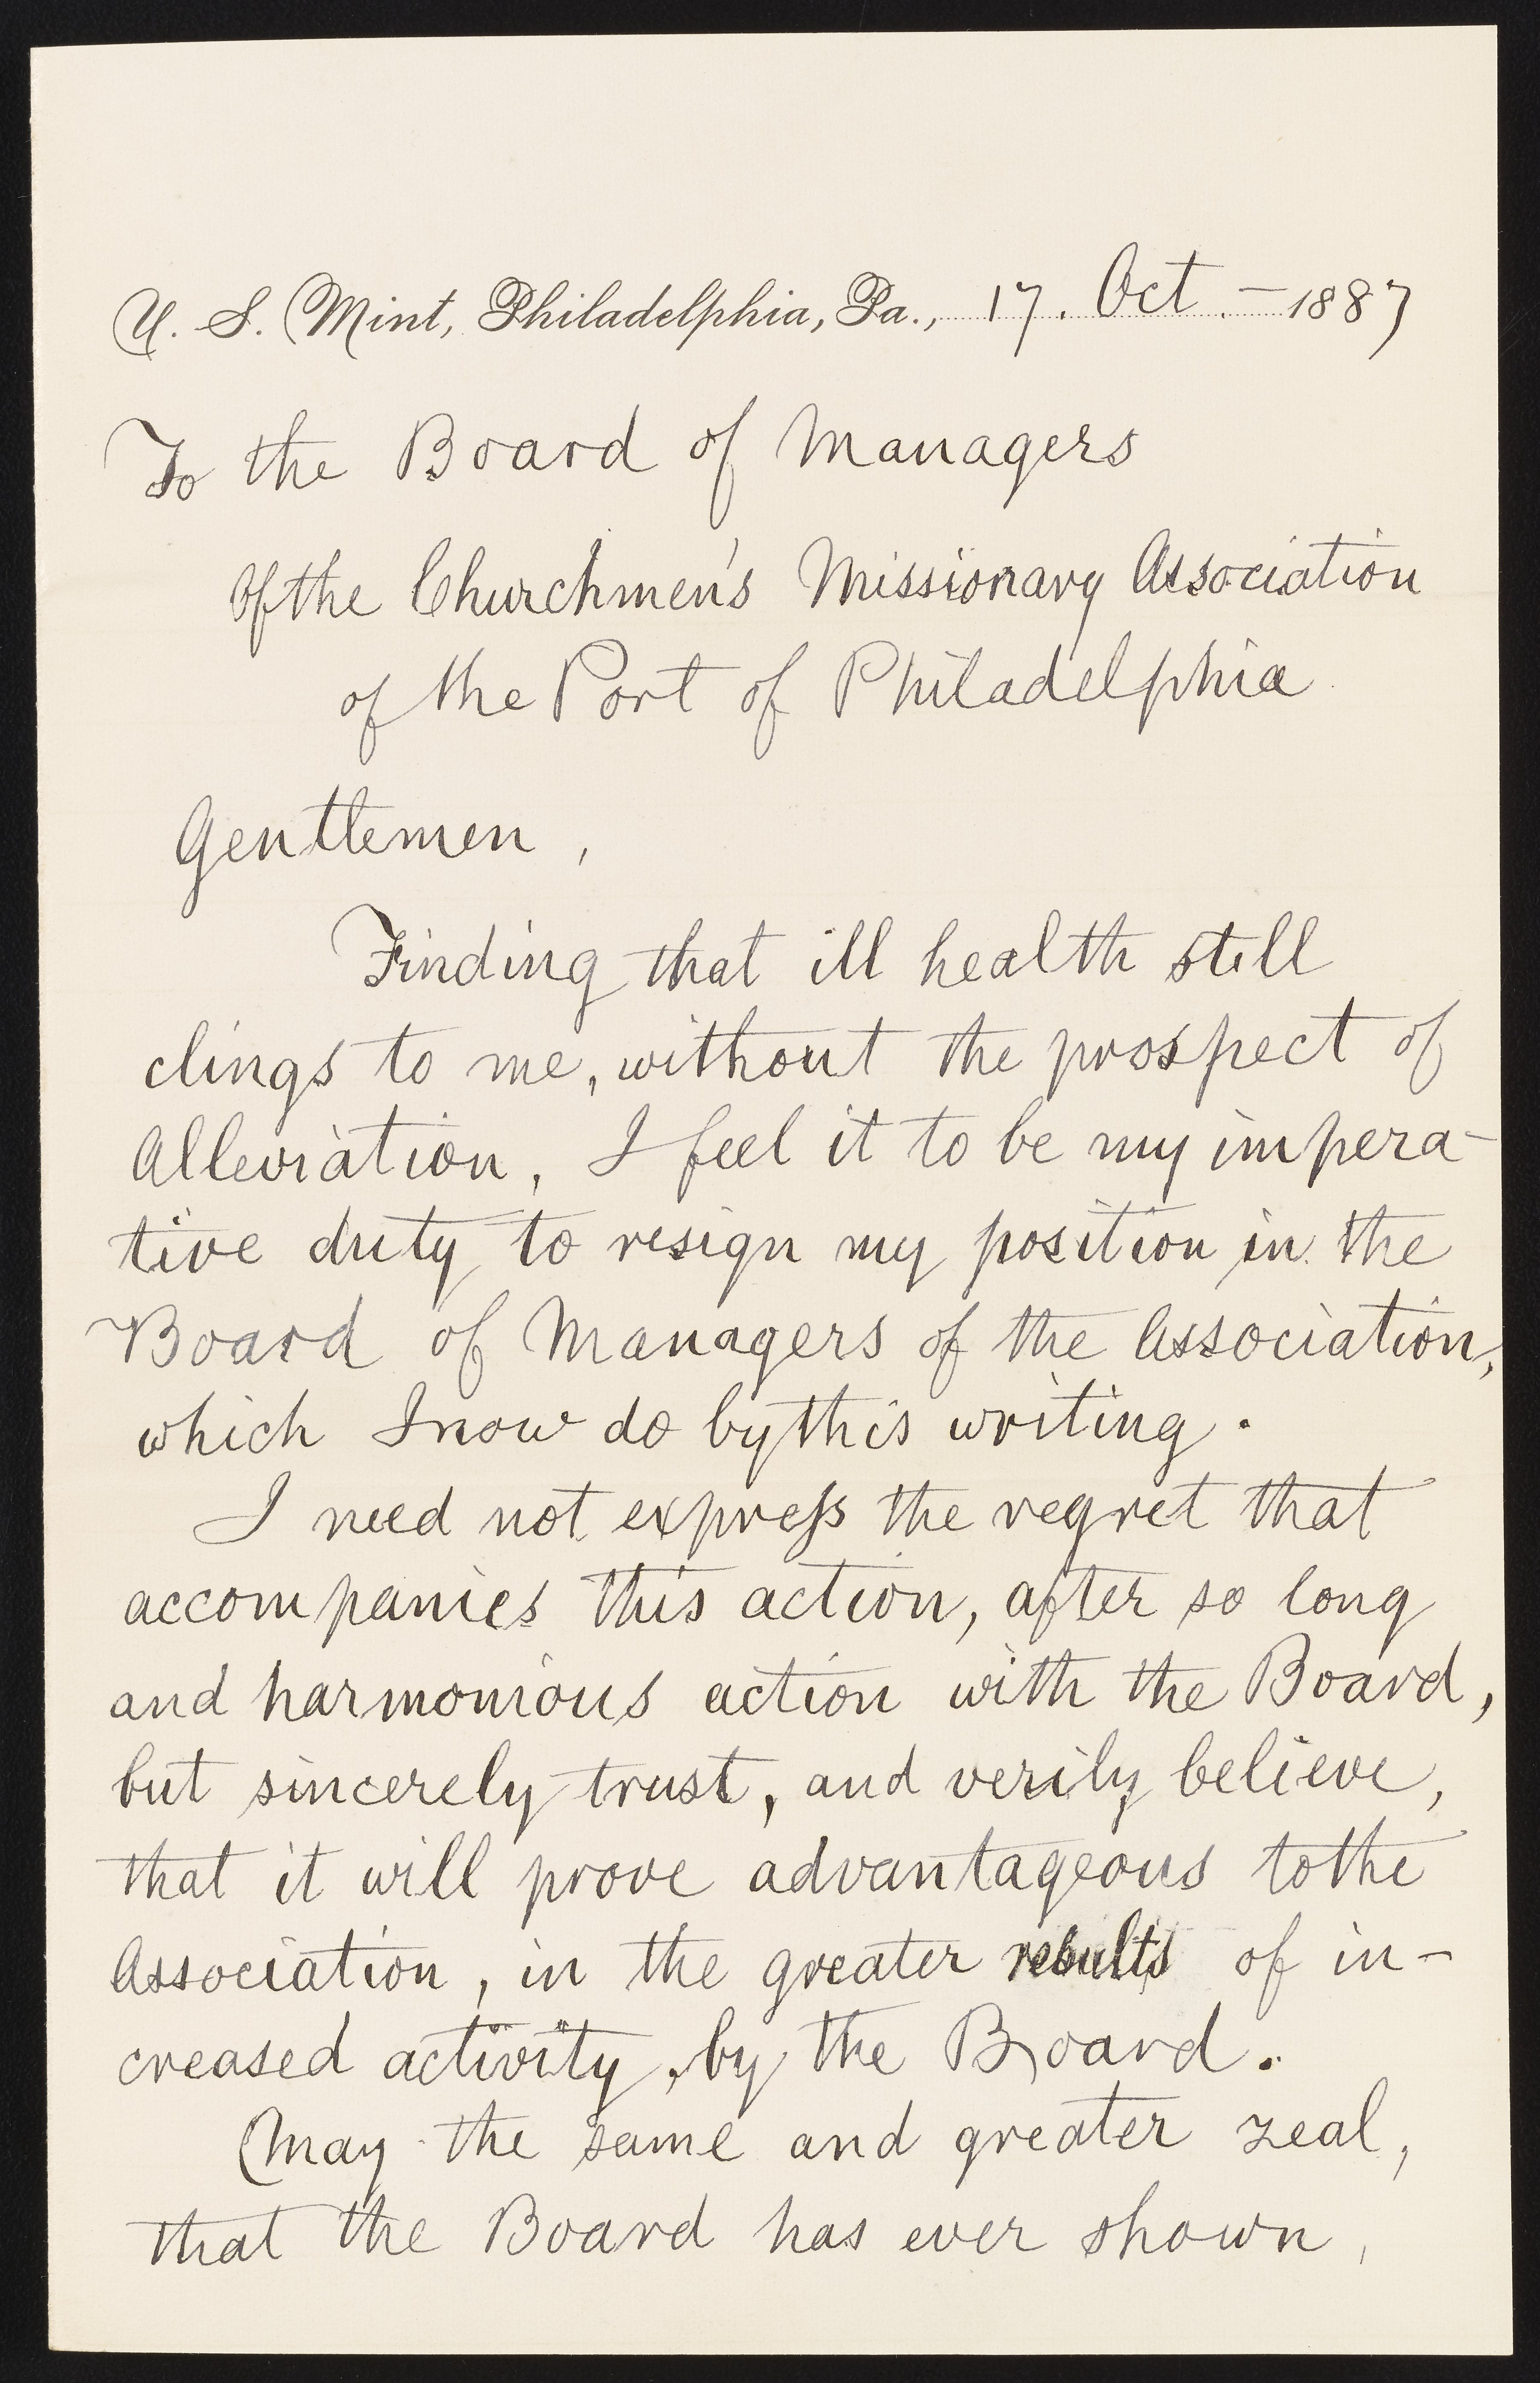 U. S. Mint, Philadelphia, Pa., 17. Oct. – 1887
To the Board of Managers
Of the Churchmen's Missionary Association
of the Port of Philadelphia
Gentlemen,
Finding that ill health still
clings to me, without the prospect of
Alleviation, I feel it to be my impera-
tive duty to resign my position in the
Board of Managers of the Association,
which I now do by this writing.
I need not express the regret that
accompanies this action, after so long
and harmonious action with the Board,
but sincerely trust, and verily believe,
that it will prove advantageous to the
Association, in the greater results of in-
creased activity, by the Board.
May the same and greater zeal,
that the Board has ever shown,